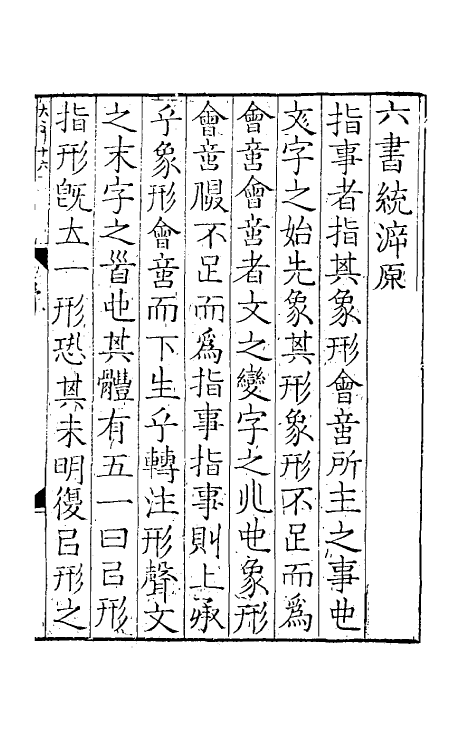 六書統溯原
指事者指其象形會意所主之事也
文字之始先象其形象形不足而為
會意會意者文之變字之兆也象形
會意假不足而為指事指事則上承
乎象形會意而下生乎轉注形聲文
之末字之首也其體有五一曰㠯形
指形旣大一形恐其未明復㠯形之